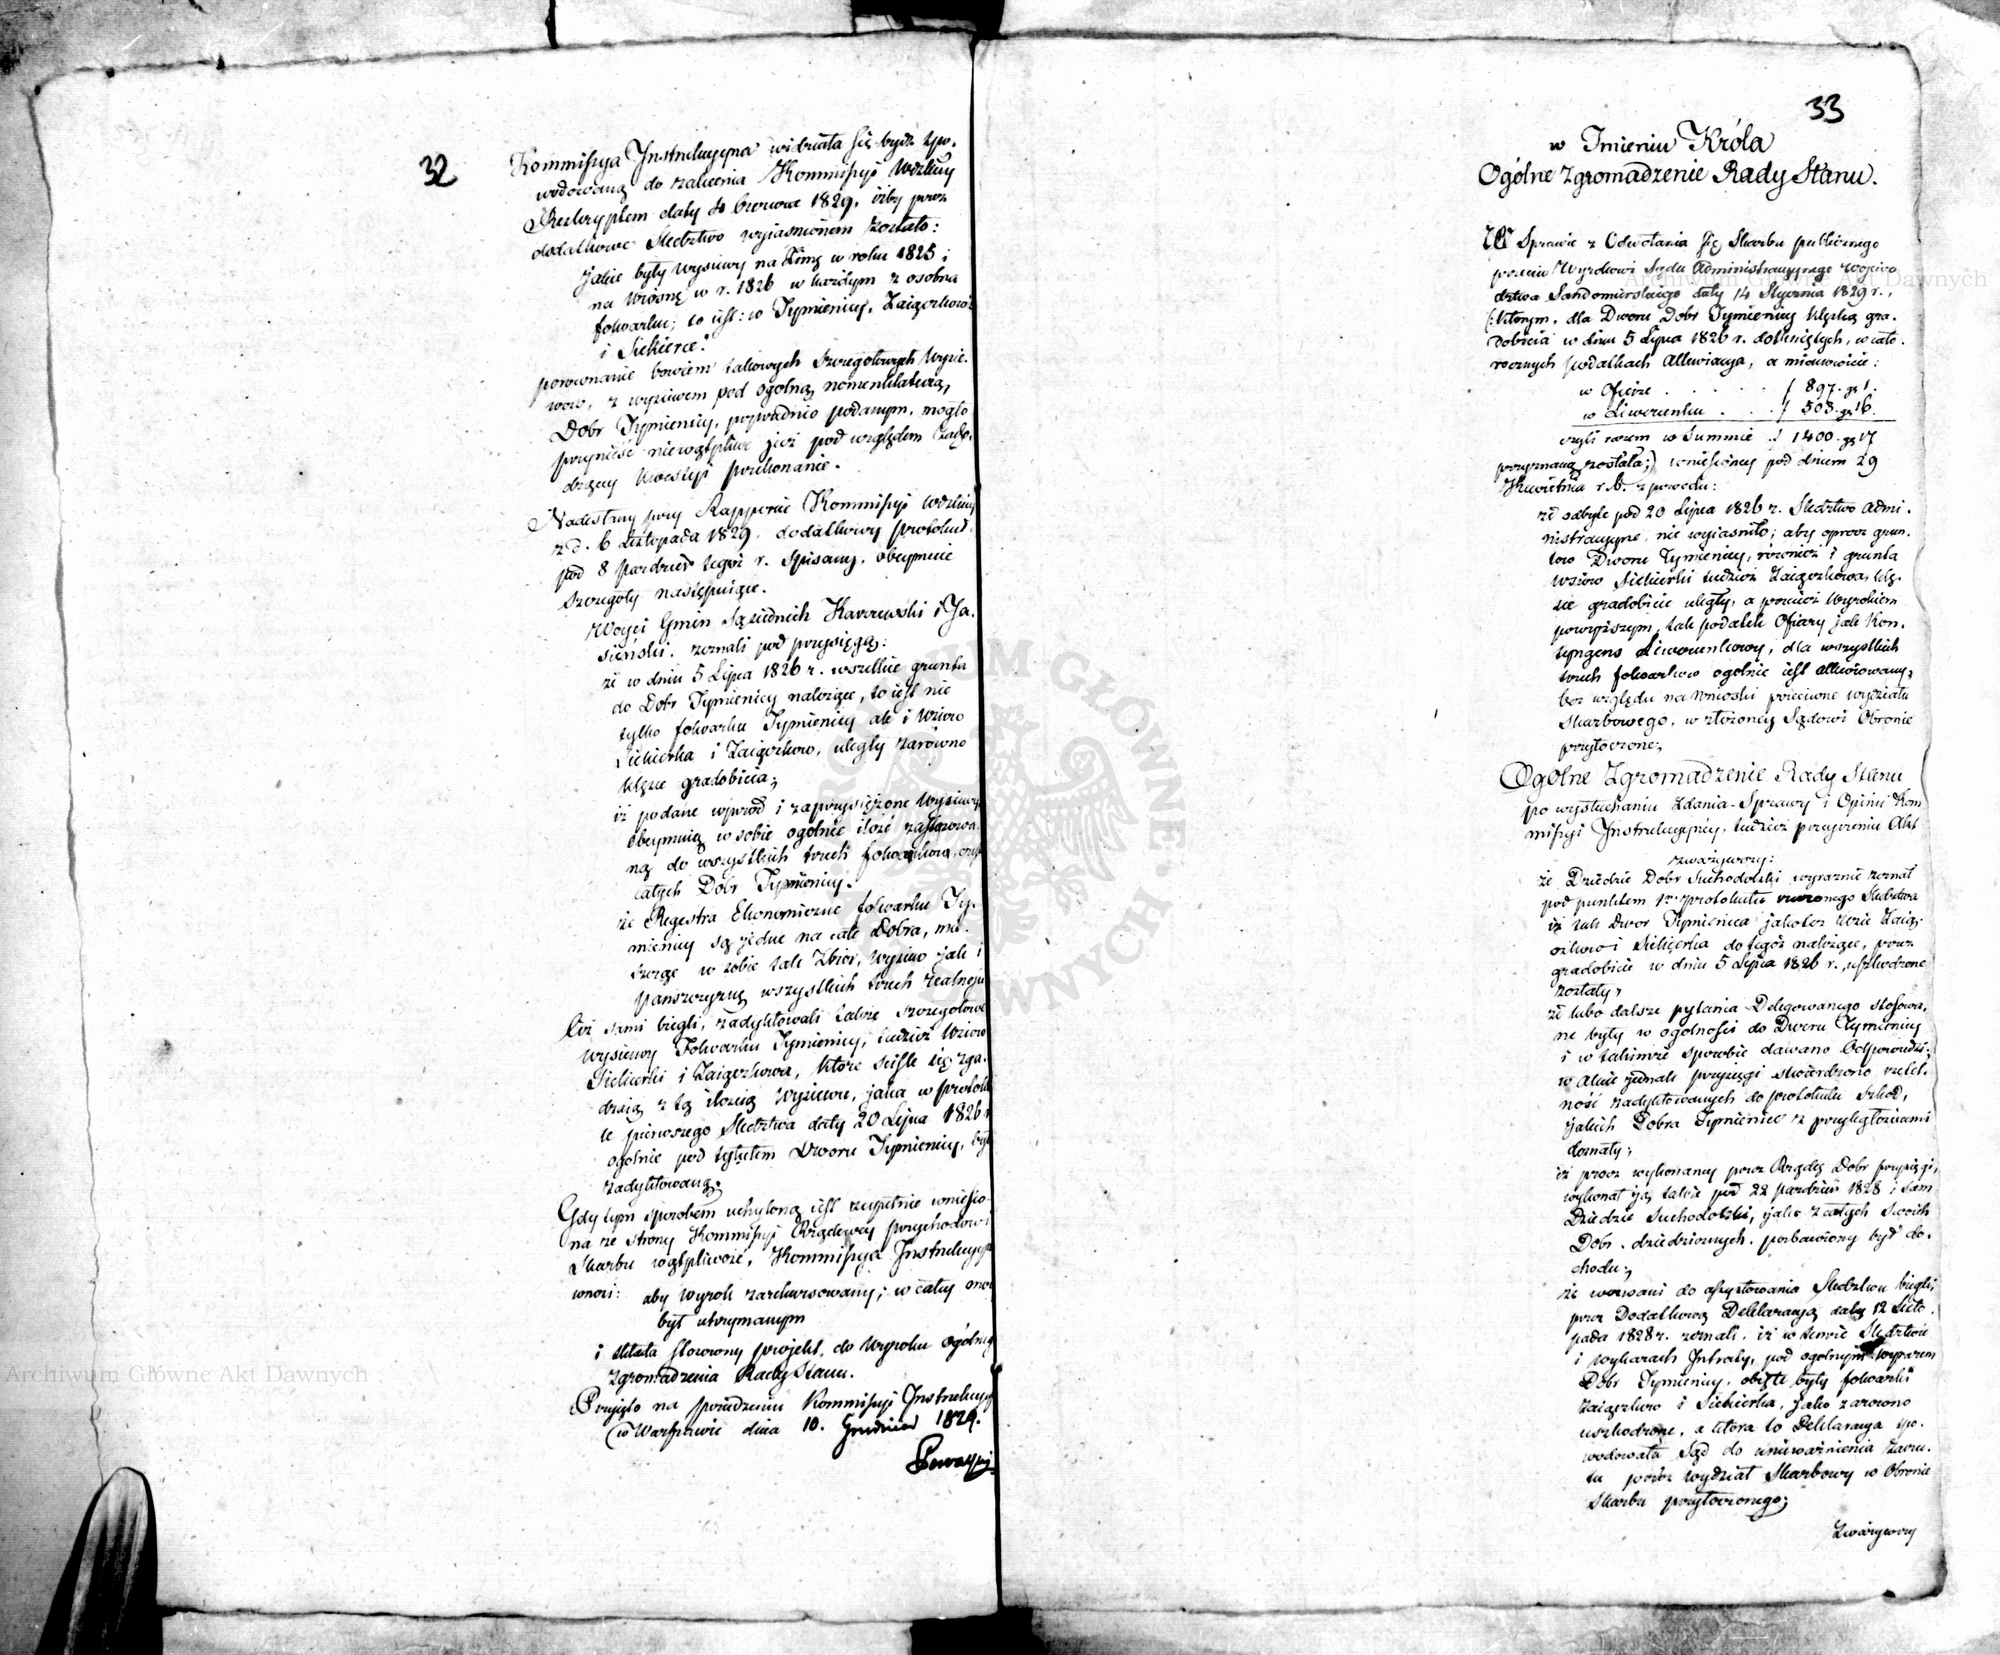 32
Kommissya Instrukcyyna widziała się bydz spo-
wodowaną do zalecenia Kommissyi Wdzkiey
Reskryptem daty 4 Czerwca 1829, iżby przez
dodatkowe Śledztwo wyiaśnionem zostało:
Jakie były wysiewy na Zimę w roku 1825 i
na Wiosnę w r. 1826 w każdym z osobna
folwarku; to iest: w Tymienicy, Zaiączkowie
i Siekierce.
porównanie bowiem takowych szczegółowych wysie-
wów, z wysiewem pod ogólną nomenklaturą,
Dobr Tymienicy, poprzednio podanym, mogło
przynieść niewątpliwe już pod względem
kwestyi przekonanie.
Nadesłany przy Rapporcie Kommissyi Wdzkiey
z d. 6 Listopada 1829, dodatkowy protokuł,
pod 8 Paźdźier tegoż r. spisany, obeymuie
szczegóły następuiące.
Woyci Gmin Sąsiednich Karczewski i Ja-
sieński, zeznali pod przysięgą:
że w dniu 5 Lipca 1826 r. wszelkie grunta
do Dobr Tymienicy należące, to iest nie
tylko folwarku Tymienicy ale i Wsiow
Siekierka i Zaiączkow, uległy zarówno
klęsce gradobicia;
iż podane wprzod i zaprzysiężone wysiewy
obeymuią w sobie ogólnie ilość zastosowa-
ną do wszystkich trzech folwarkow, czyli
całych Dobr Tymienicy.
że Regestra Ekonomiczne folwarku Ty-
mienicy są jedne na całe Dobra, mie-
szczące w sobie tak Zbior, wysiew jak i
pańszczyznę wszystkich trzech realności
Ciż sami biegli, zadyktowali także szczegółowe
wysiewy Folwarku Tymienicy, tudzież Wsiow
Siekierki i Zaiączkowa, które ściśle się zga-
dzaią z tą ilością wysiewu, jaka w protokó-
le pierwszego Śledztwa daty 20 Lipca 1826 r
ogólnie pod tytułem Dworu Tymienicy, była
zadyktowaną.
Gdy tym sposobem uchyloną iest zupełnie wniesio-
na ze strony Kommissyi Rządowey przychodow i
Skarbu wątpliwość, Kommissya Instrukcyyna
wnosi: aby Wyrok zarekursowany, w całey mocy
był utrzymanym
i składa stosowny projekt, do Wyroku Ogólnego
Zgromadzenia Rady Stanu.
Przyięto na posiedzeniu Kommissyi Instrukcyyney
w Warszawie dnia 10. Grudnia 1829.
33
w Imieniu Króla
Ogólne Zgromadzenie Rady Stanu.
W Sprawie z Odwołania się Skarbu publicznego
przeciw Wyrokowi Sądu Administracyynego Wojewo-
dztwa Sandomirskiego daty 14 Stycznia 1829 r.,
(: którym, dla Dworu Dobr Tymienicy klęską gra-
dobicia w dniu 5 Lipca 1826 r. dotkniętych, w cało-
rocznych podatkach Allewiacya, a mianowicie:
w Ofierze . . . . . f 897. gr 1.
w Liwerunku . . . f 503. gr 16.
czyli razem w Summie . f 1400. gr 17
przyznaną została;) wniesioney pod dniem 29
Kwietnia r. b. z powodu:
że odbyte pod 20 Lipca 1826 r. Śledztwo Admi-
nistracyyne, nie wyiaśniło; aby oprocz grun-
tow Dworu Tymienicy, również i grunta
wsiow Siekierki tudzież Zaiączkowa, klę-
sce gradobicia uległy, a przecież Wyrokiem
powyższym, tak podatek Ofiary jak Kon-
tyngens Liwerunkowy, dla wszystkich
trzech folwarkow ogólnie iest allewiowany,
bez względu na Wnioski przeciwne wydziału
Skarbowego, w złożoney Sądowi Obronie
przytoczone;
Ogólne Zgromadzenie Rady Stanu
po wysłuchaniu Zdania-Sprawy i Opinii Kom-
missyi Instrukcyyney, tudzież przeyrzeniu Akt
zważywszy:
że Dziedzic Dobr Suchodolski wyraźnie zeznał
pod punktem 1m protokułu rzeczonego Śledztwa
iż tak Dwor Tymienica jakoteż wsie Zaią-
czkow i Siekierka do tegoż należące, przez
gradobicie w dniu 5 Lipca 1826 r., uszkodzone
zostały,
że lubo dalsze pytania Delegowanego stosowa-
ne były w ogólności do Dworu Tymienicy
i w takimże sposobie dawano Odpowiedzi;
w Akcie jednak przysięgi stwierdzono rzetel-
ność zadyktowanych do protokułu szkod,
jakich Dobra Tymienice z przyległościami
doznały;
iż procz wykonaney przez Rządcę Dobr przysięgi,
wykonał ją także pod 22 Paździer 1828 i sam
Dziedzic Suchodolski, jako z całych swoich
Dobr dziedzicznych, pozbawiony był do-
chodu;
że wezwani do assystowania Śledztwu biegli,
przez Dodatkową Deklaracyą daty 12 Listo-
pada 1828 r. zeznali, iż w temże Śledztwie
i wykazach Intraty, pod ogólnym wyrazem
Dobr Tymienicy, obięte były folwarki
Zaiączkow i Siekierka, jako zarowno
uszkodzone, a która to Deklaracya spo-
wodowała Sąd do unieważnienia zarzu-
tu przez wydział Skarbowy w Obronie
Skarbu przytoczonego;
Zważywszy
Archiwum Główne Akt Dawnych
Archiwum Główne Akt Dawnych
ARCHIWUM GŁÓWNE AKT DAWNYCH